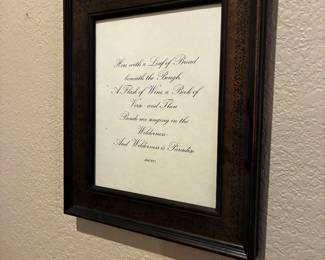 Here with a Loaf of Bread
beneath the Bough,
A Flask of Wine, a Book of
Verse - and Thou
Beside me singing in the
Wilderness
And Wilderness is Paradise